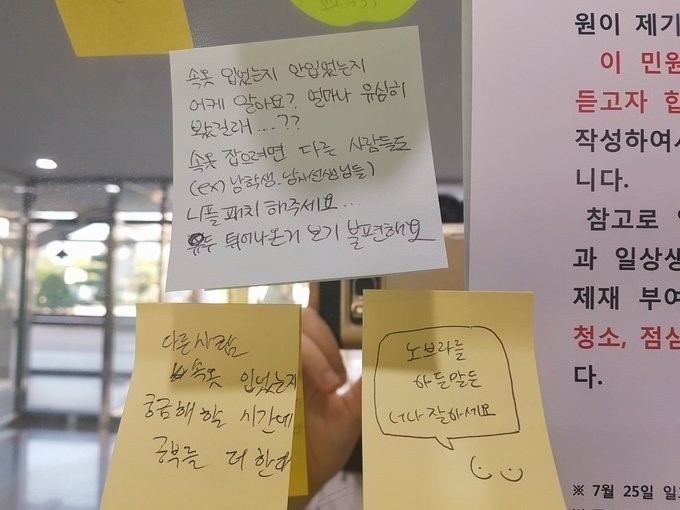 속옷 입었는지 안입었는지
어케 알아요? 얼마나 유심히
봤길래....??
속옷 잡으려면 다른 사람들도
(ex) 남학생.남자선생님들)
니플패치 해주세요...
유두 튀어나온거 보기 불편해요
다른사람
속옷 입었는지
궁금해 할 시간에
공부를 더 한다
노브라를
하든말든
너나 잘하세요
원이 제기
이 민원
듣고자 합
작성하여서
니다.
참고로
과 일상생
제재 부여
청소, 점심
다.
※ 7월 25일 일